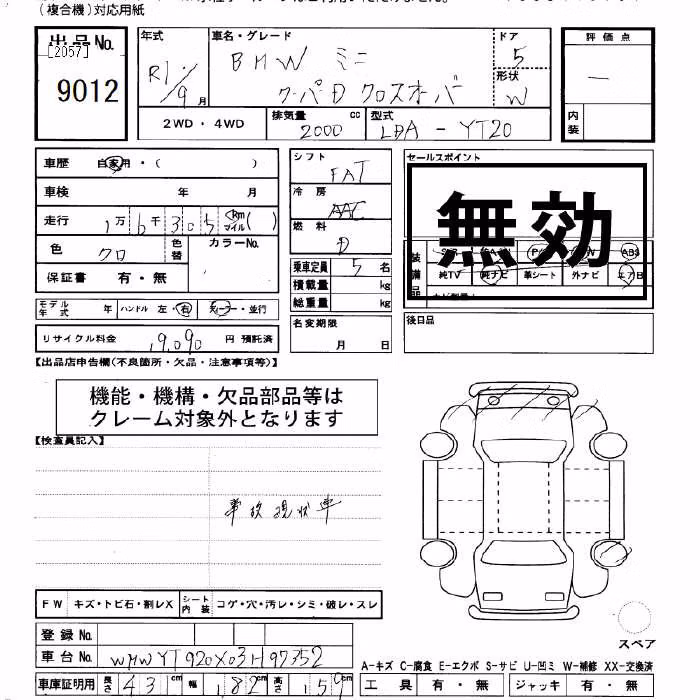 （複合機）対応用紙
出品No.
[2057]
9012
年式
R1/9 月
車名・グレード
BMW ミニ
クーパーD クロスオーバー
ドア
5
形状
W
2WD・4WD
排気量
2000 cc
型式
LDA - YT20
評価点
内装
車歴 自家用・( )
車検 年 月
走行 1万 6千 3 0 5 Km マイル ( )
色 クロ 色替 カラーNo.
保証書 有・無
モデル年式 年 ハンドル 左・右 ディーラー・並行
リサイクル料金 19,090 円 預託済
シフト
FAT
冷房
AAC
燃料
D
乗車定員 5 名
積載量 kg
総重量 kg
名変期限
月 日
セールスポイント
無効
装備品
ABS
純TV 純ナビ 革シート 外ナビ エアB
後日品
【出品店申告欄(不良箇所・欠品・注意事項等)】
機能・機構・欠品部品等は
クレーム対象外となります
【検査員記入】
事故現状車
FW キズ・トビ石・割レX シート内装 コゲ・穴・汚レ・シミ・破レ・スレ
登録No.
車台No. WMWYT920X03H97352
車庫証明用 長さ 43 cm 幅 182 cm 高さ 159
スペア
A-キズ C-腐食 E-エクボ S-サビ U-凹ミ W-補修 XX-交換済
工具 有・無 ジャッキ 有・無